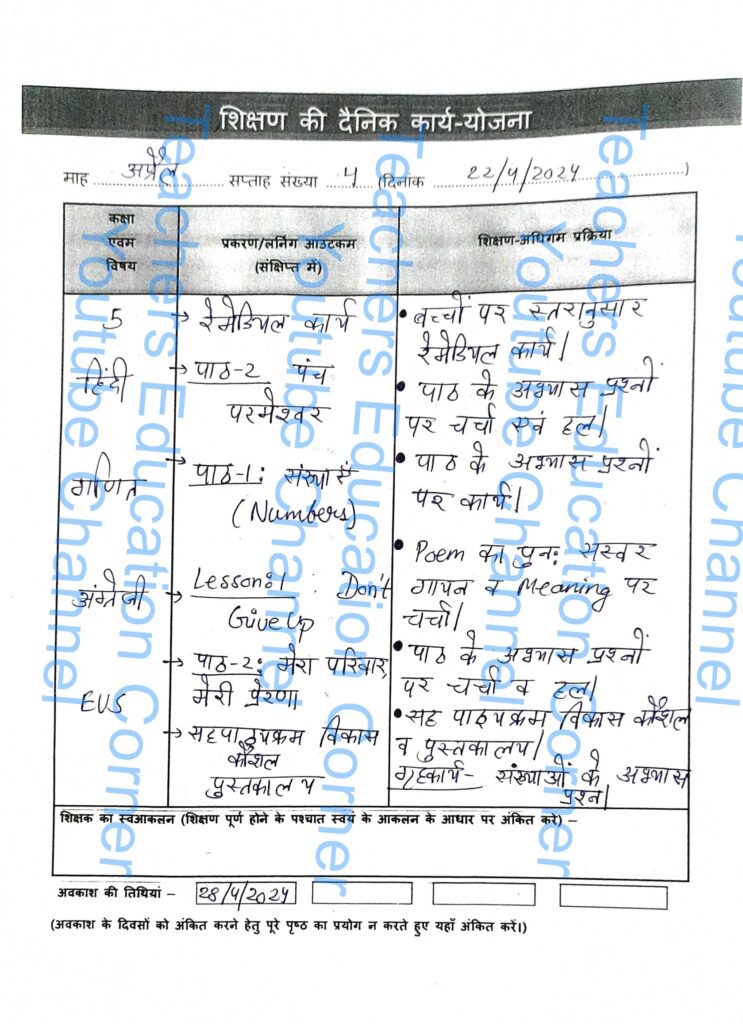 शिक्षण की दैनिक कार्य-योजना
माह अप्रैल सप्ताह संख्या 4 (दिनांक 22/4/2024)
कक्षा एवम विषय
प्रकरण/लर्निंग आउटकम (संक्षिप्त में)
शिक्षण-अधिगम प्रक्रिया
5
→ रेमेडियल कार्य
• बच्चों पर स्तरानुसार
रेमेडियल कार्य।
हिंदी
→ पाठ-2 पंच
परमेश्वर
• पाठ के अभ्यास प्रश्नों
पर चर्चा एवं हल।
गणित
→ पाठ-1: संख्याएँ
(Numbers)
• पाठ के अभ्यास प्रश्नों
पर कार्य।
अंग्रेजी
→ Lesson:1 : Don't
Give Up
• Poem का पुनः सस्वर
गायन व Meaning पर
चर्चा।
EVS
→ पाठ-2: मेरा परिवार,
मेरी प्रेरणा
• पाठ के अभ्यास प्रश्नों
पर चर्चा व हल।
→ सहपाठ्यक्रम विकास
कौशल
पुस्तकालय
• सह पाठ्यक्रम विकास कौशल
व पुस्तकालय।
गृहकार्य- संख्याओं के अभ्यास
प्रश्न।
शिक्षक का स्वआकलन (शिक्षण पूर्ण होने के पश्चात स्वयं के आकलन के आधार पर अंकित करे) –
अवकाश की तिथियां – 28/4/2024
(अवकाश के दिवसों को अंकित करने हेतु पूरे पृष्ठ का प्रयोग न करते हुए यहाँ अंकित करें।)
Teachers Education Corner
Youtube Channel
Teachers Education Corner
Youtube Channel
Teachers Education Corner
Youtube Channel